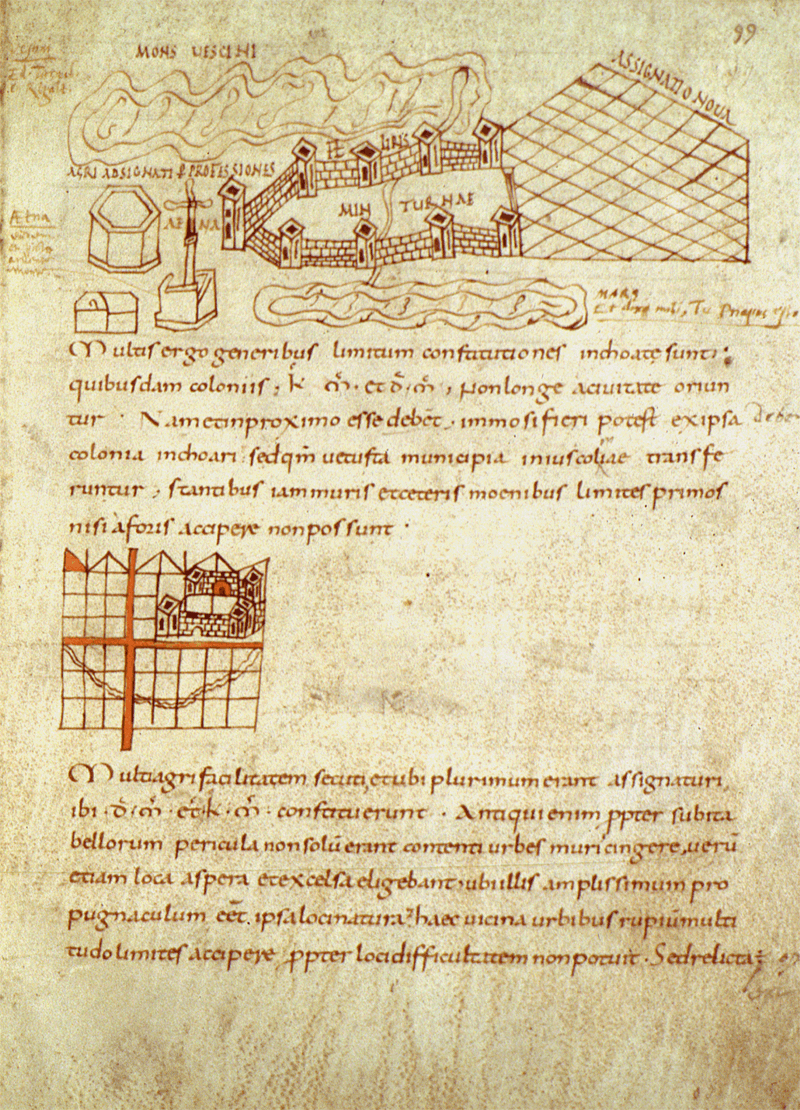 99
MONS VESCINI
ASSIGNATIO NOVA
AGRI ADSIGNATI PROFESSIONES
MIN TURNAE
AE NA
Ætna
MARS
Multis ergo generibus limitum constitutiones inchoatę sunt;
quibusdam coloniis, k̄ m̄. et d̄. m̄, non longe a ciuitate oriun
tur. Nam et in proximo esse debēt. immo si fieri potest ex ipsa
colonia inchoari. sed qm̄ uetusta municipia in ius coliae transfe
runtur, stantibus iam muris et ceteris moenibus limites primos
nisi a foris accipere non possunt.
Multi agri facilitatem secuti, et ubi plurimum erant assignaturi,
ibi. d̄. m̄. et. k̄. m̄. constituerunt. Antiqui enim ppter subita
bellorum pericula non solū erant contenti urbes muri cingere, uerū
etiam loca aspera et excelsa eligebant, ubi illis amplissimum pro
pugnaculum eēt. ipsa loci natura. haec uicina urbibus rupiū multi
tudo limites accipere ppter loci difficultatem non potuit. Sed relicta